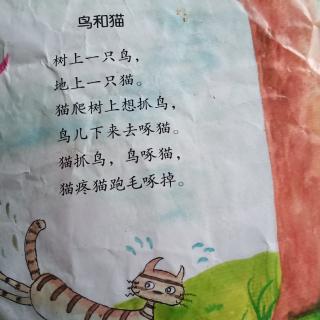 鸟和猫
树上一只鸟，
地上一只猫。
猫爬树上想抓鸟，
鸟儿下来去啄猫。
猫抓鸟，鸟啄猫，
猫疼猫跑毛啄掉。